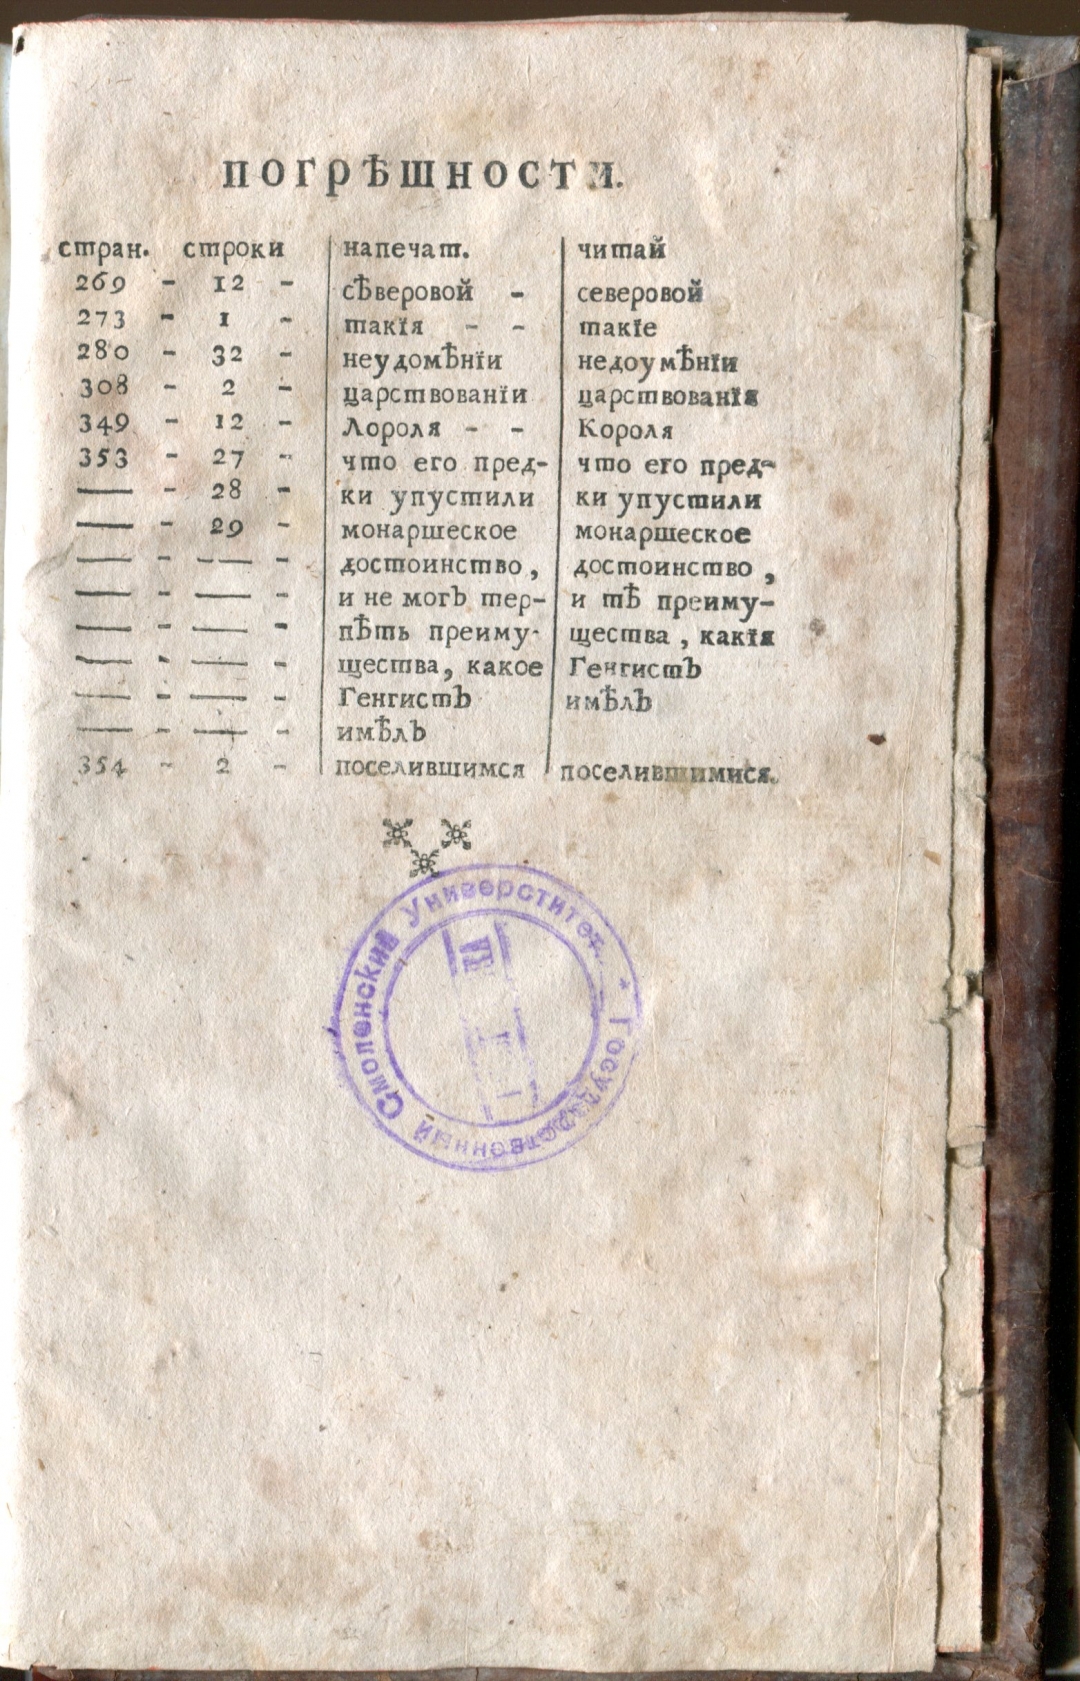 ПОГРѢШНОСТИ.
стран. строки напечат. читай
269 - 12 - сѣверовой - северовой
273 - 1 - такїя - - такїе
280 - 32 - неудомѣнїи недоумѣнїи
308 - 2 - царствованїи царствованїя
349 - 12 - Лороля - - Короля
353 - 27 - что его пред- что его пред-
— - 28 - ки упустили ки упустили
— - 29 - монаршеское монаршеское
— - — - достоинство, достоинство,
— - — - и не могъ тер- и тѣ преиму-
— - — - пѣть преиму- щества, какїя
— - — - щества, какое Генгистъ
— - — - Генгистъ имѣлъ
— - — - имѣлъ
354 - 2 - поселившимся поселившимися.
Смоленский Университет * Государственный